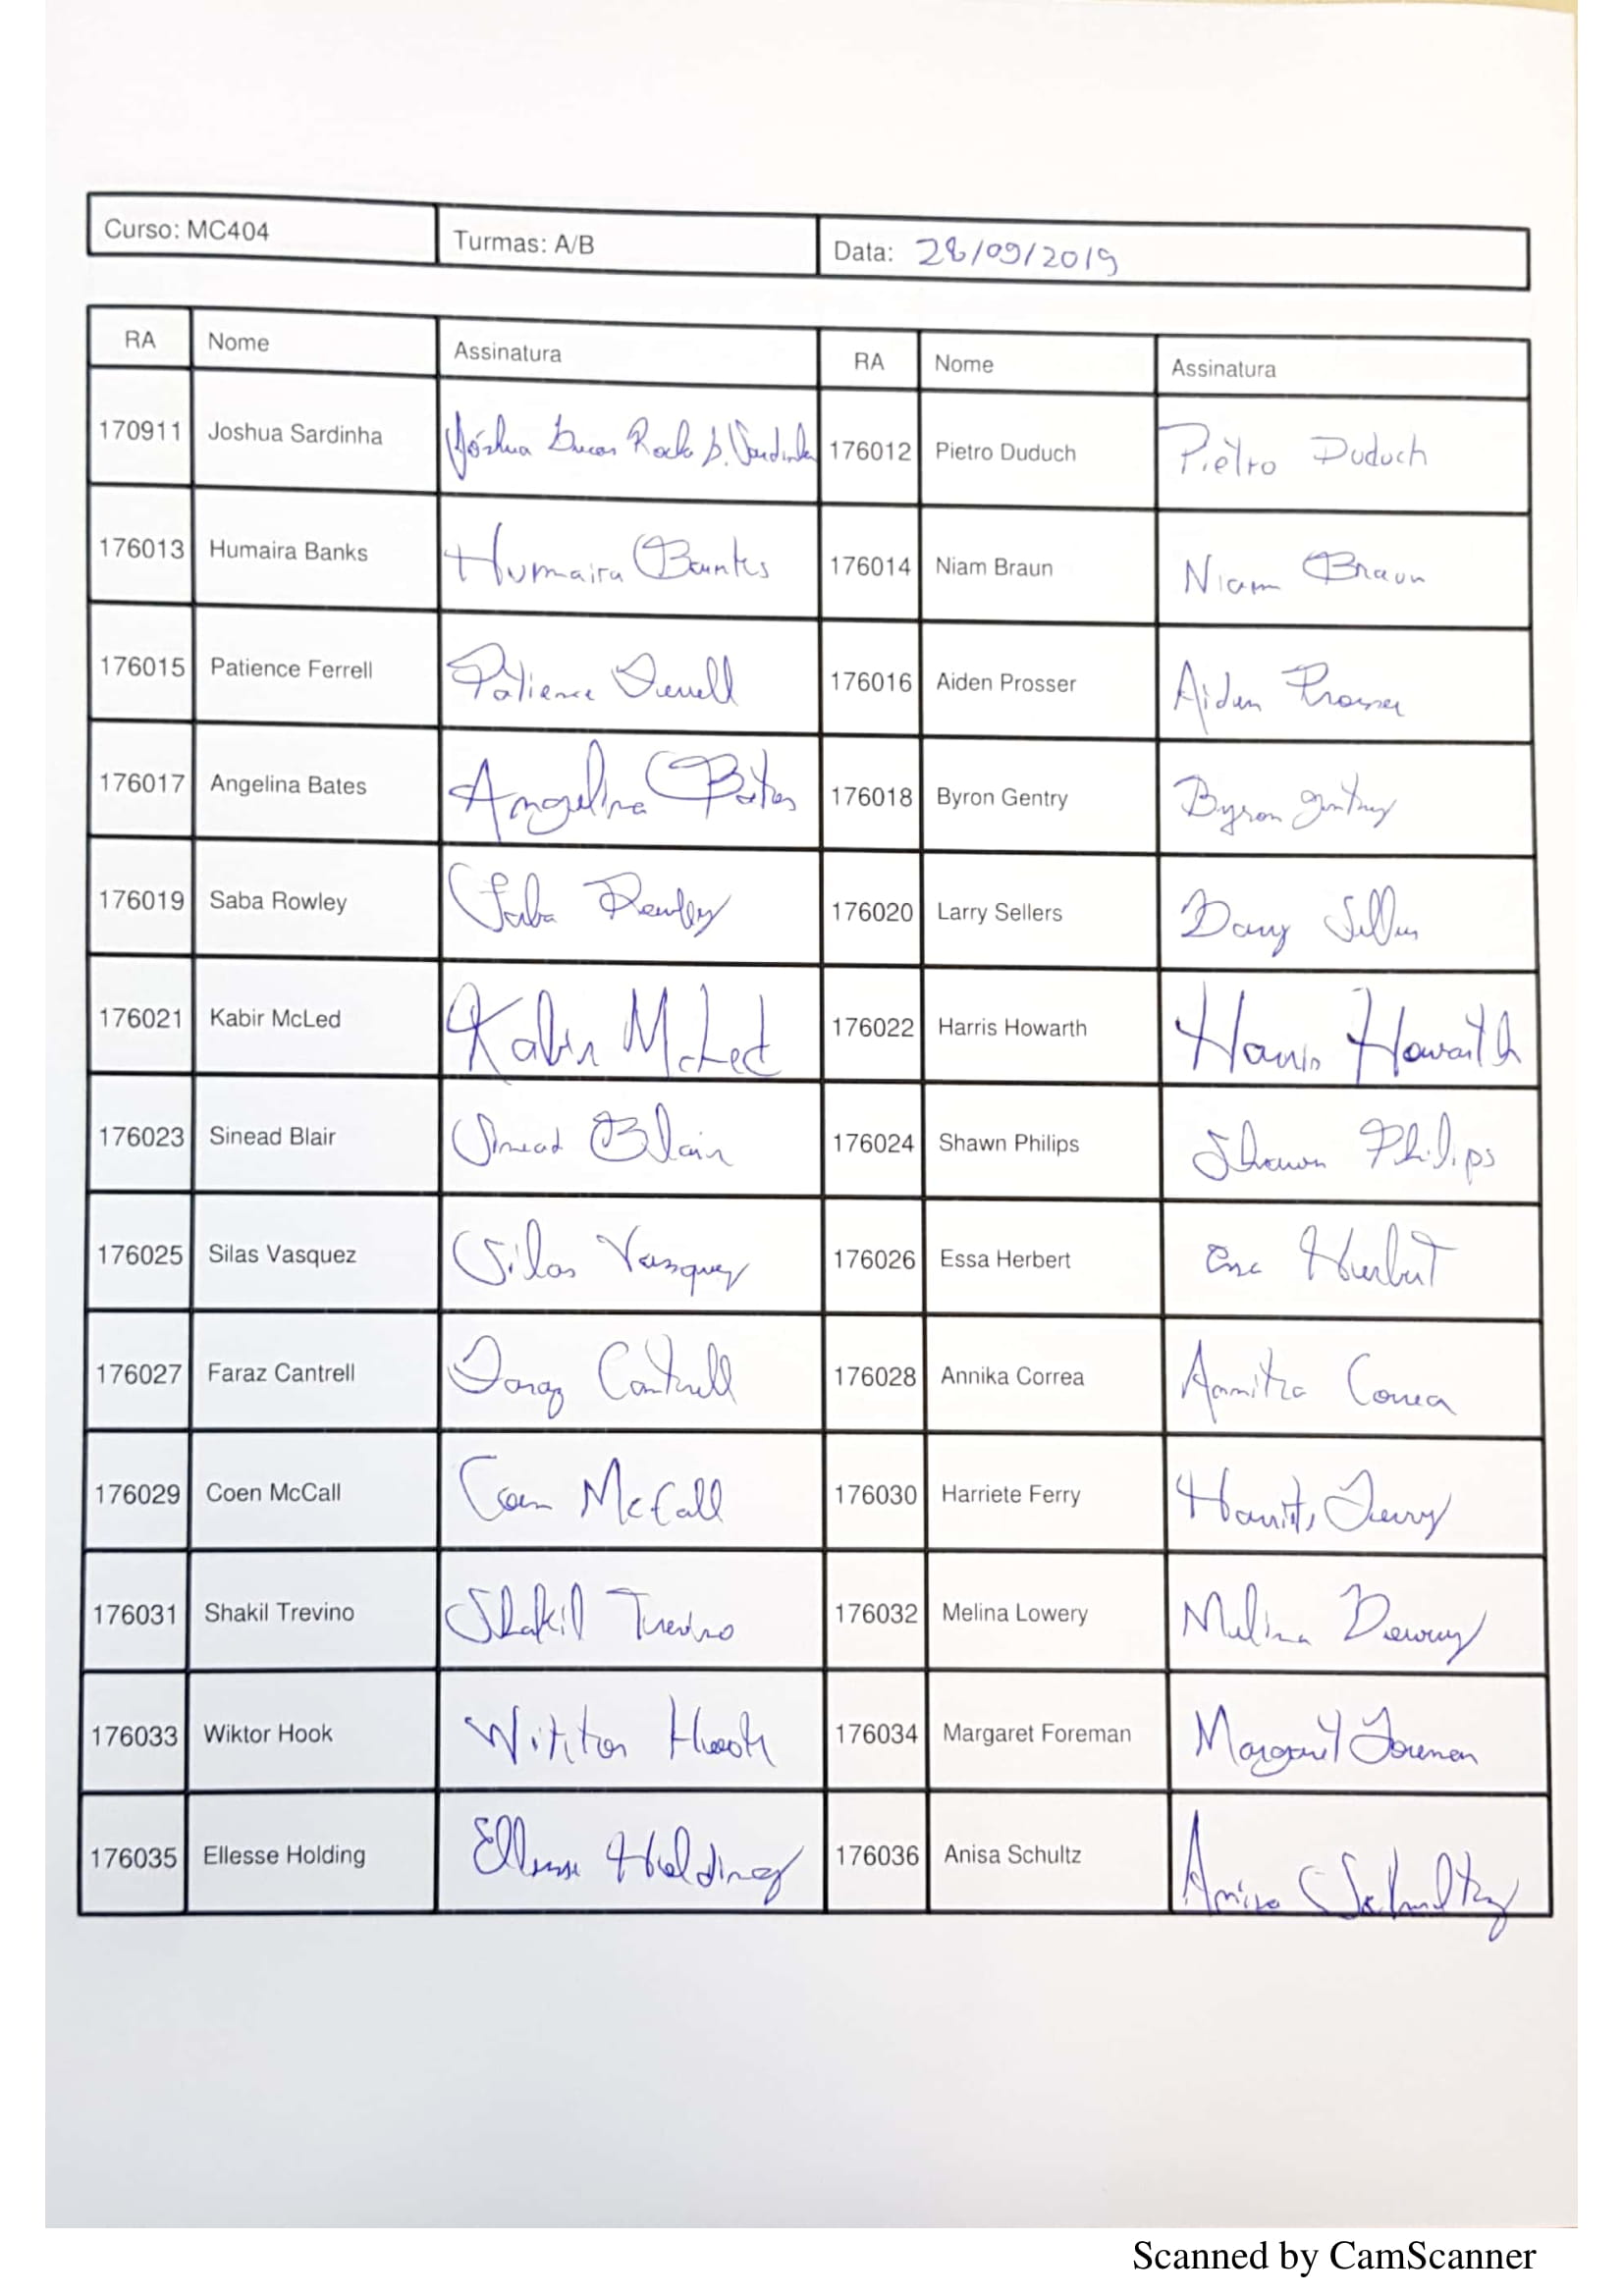 Curso: MC404 Turmas: A/B Data: 28/09/2019
RA Nome Assinatura RA Nome Assinatura
170911 Joshua Sardinha Jóshua Lucas Rocha S. Sardinha 176012 Pietro Duduch Piêtro Duduch
176013 Humaira Banks Humaira Banks 176014 Niam Braun Niam Braun
176015 Patience Ferrell Patience Ferrell 176016 Aiden Prosser Aiden Prosser
176017 Angelina Bates Angelina Bates 176018 Byron Gentry Byron Gentry
176019 Saba Rowley Saba Rowley 176020 Larry Sellers Larry Sellers
176021 Kabir McLed Kabir McLed 176022 Harris Howarth Harris Howarth
176023 Sinead Blair Sinead Blair 176024 Shawn Philips Shawn Philips
176025 Silas Vasquez Silas Vasquez 176026 Essa Herbert Essa Herbert
176027 Faraz Cantrell Faraz Cantrell 176028 Annika Correa Annika Correa
176029 Coen McCall Coen McCall 176030 Harriete Ferry Harriete Ferry
176031 Shakil Trevino Shakil Trevino 176032 Melina Lowery Melina Lowery
176033 Wiktor Hook Wiktor Hook 176034 Margaret Foreman Margaret Foreman
176035 Ellesse Holding Ellesse Holding 176036 Anisa Schultz Anisa Schultz
Scanned by CamScanner